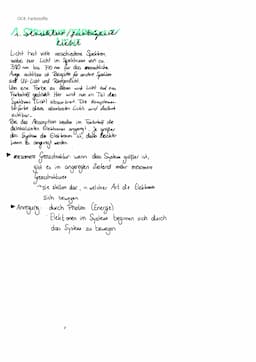 OC4: Farbstoffe
1. Struktur / Farbigkeit
Licht hat viele verschiedene Spektren,
wobei nur Licht im Spektrum von ca.
380 nm bis 790 nm für das menschliche
Auge sichtbar ist. für andere Spektren
UV-Licht und Röntgenlicht.
Um eine Farbe zu sehen wird Licht auf den
Farbstoff gestrahlt. Hier wird nur ein Teil des
Spektrums (Licht) absorbiert. Die
für dieses absorbierte Licht wird
sichtbar.
Bei der Absorption werden im Farbstoff die
delokalisierten Elektronen angeregt. Je größer
das System der Elektronen ist, desto leichter
kann es angeregt werden.
▶ mesomere Grenzstruktur: wenn das System größer ist,
gibt es im angeregten Zustand mehr mesomere
Grenzstrukturen
→ sie stellen dar, in welcher Art die Elektronen
sich bewegen
▶ Anregung: durch Photon (Energie)
Elektronen im System beginnen sich durch
das System zu bewegen